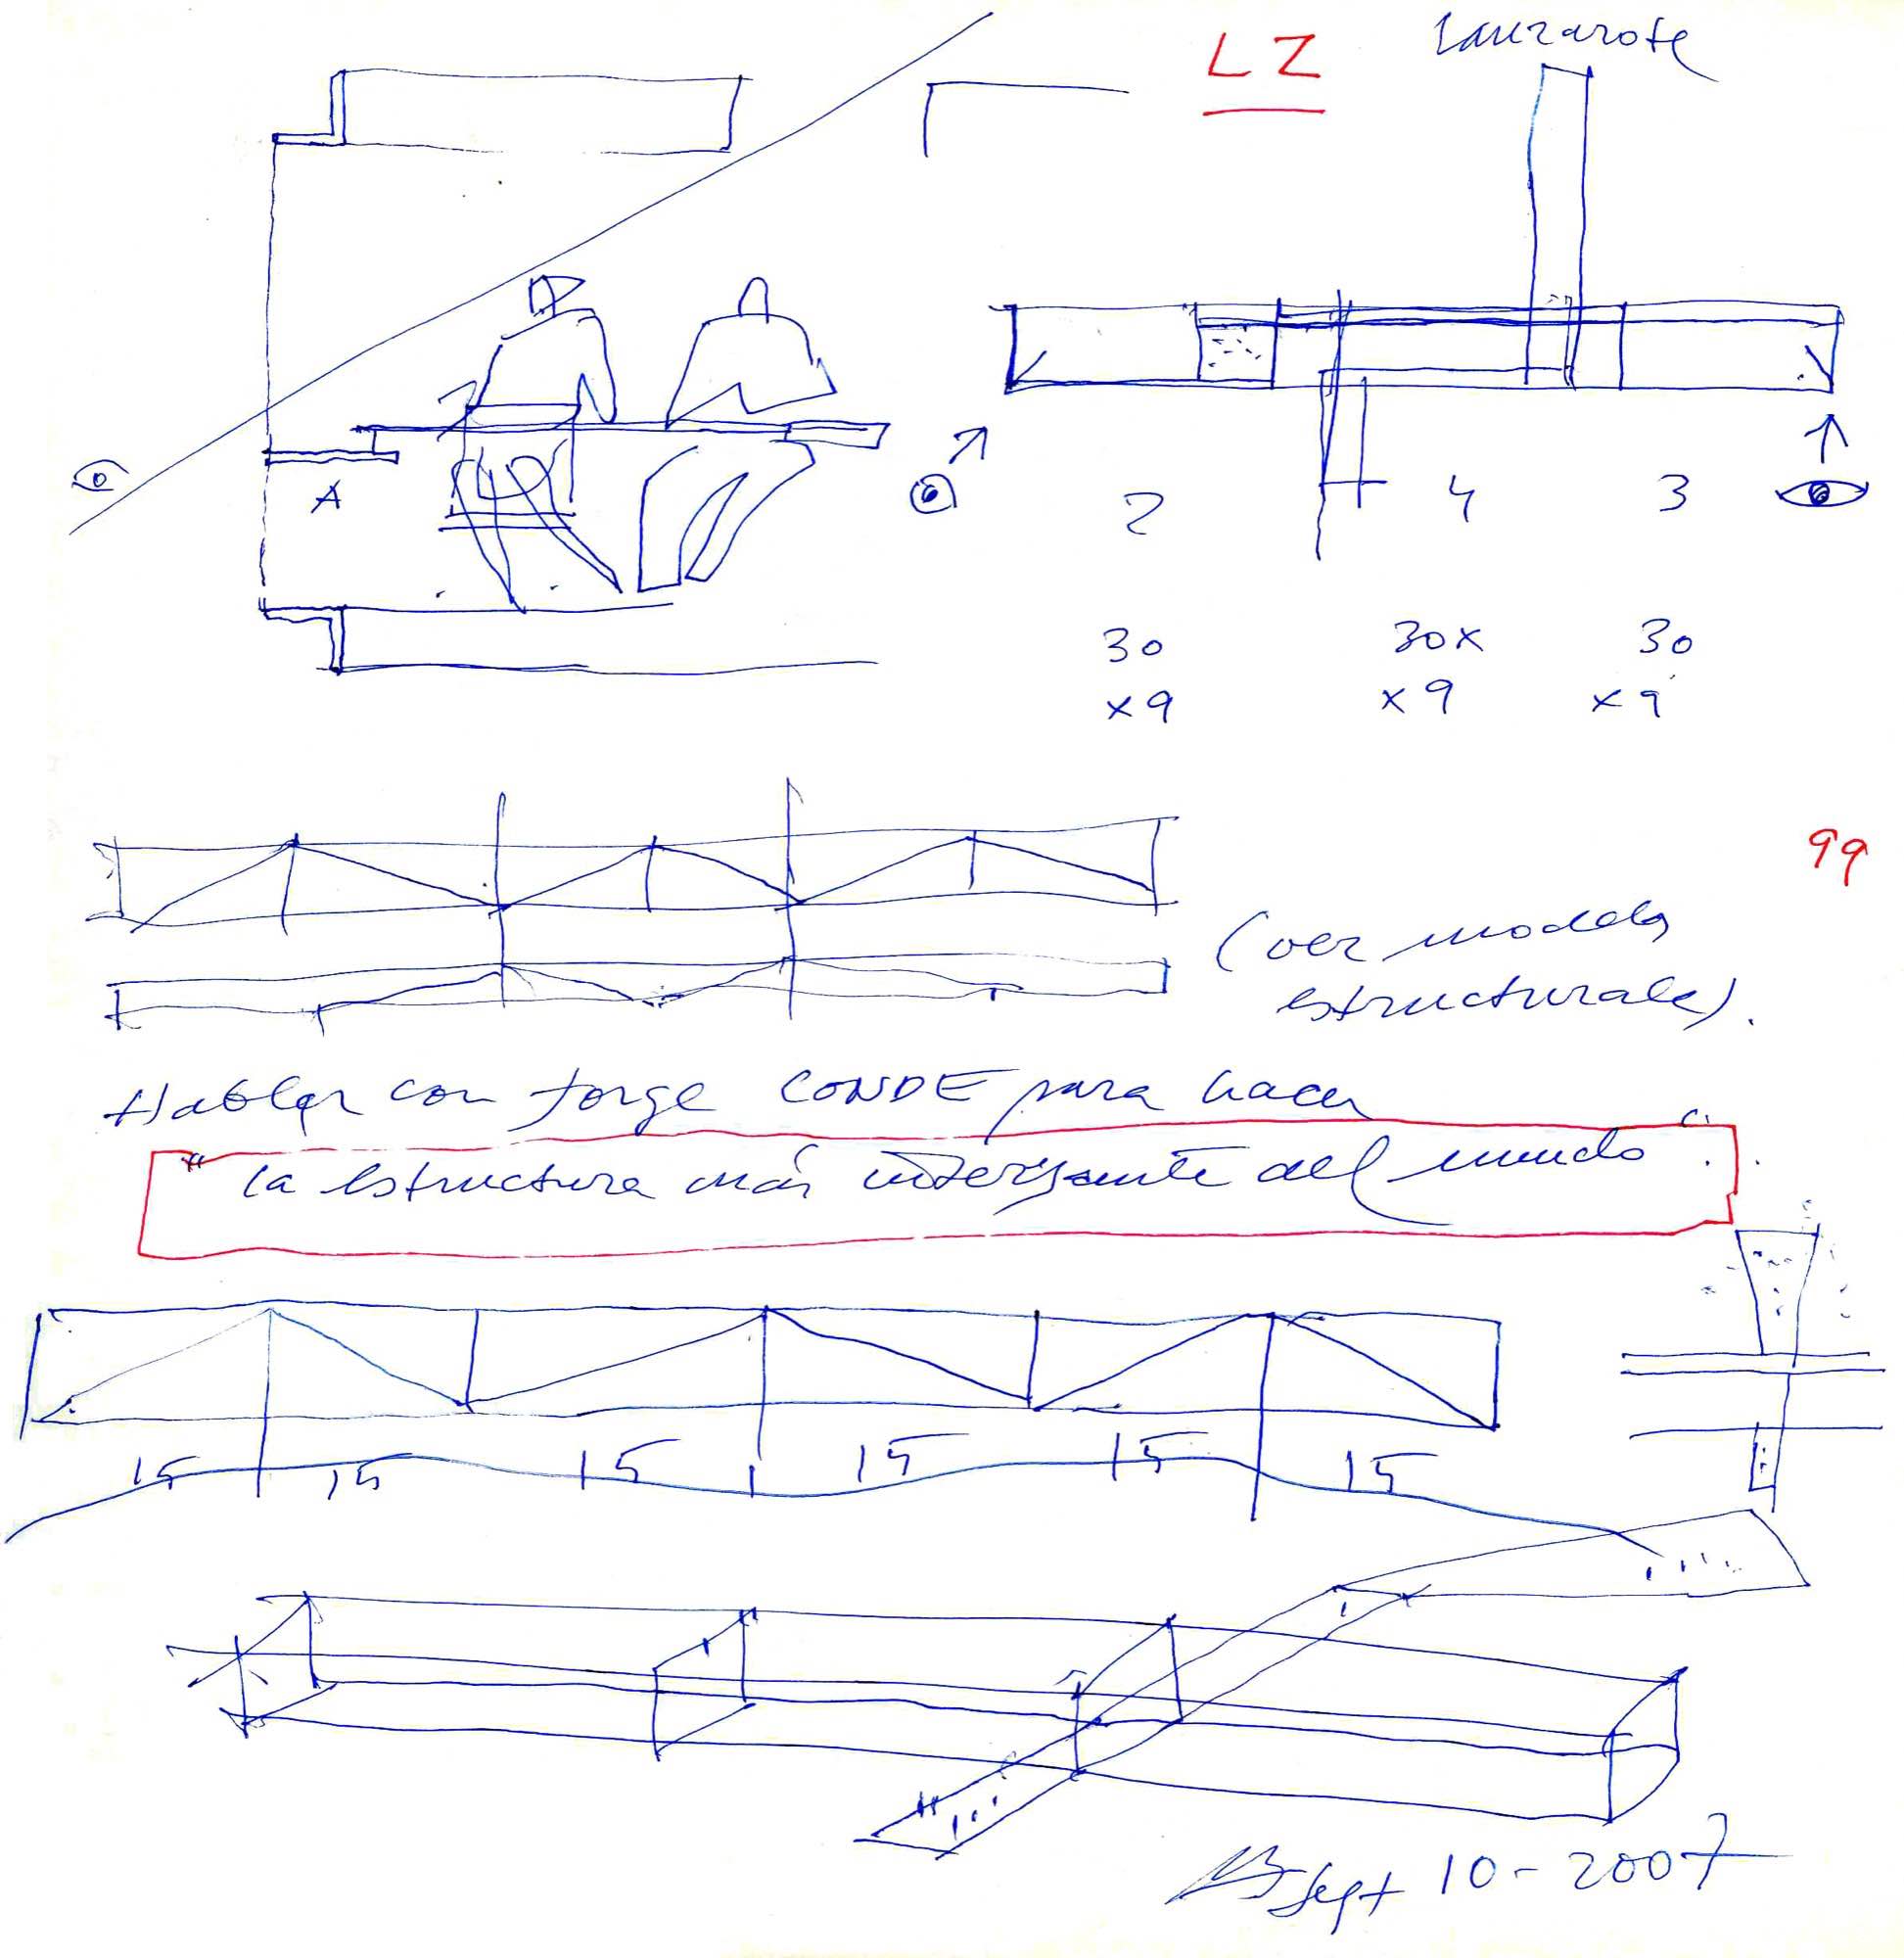 LZ Lanzarote
A
2 4 3
30 30x 30
x9 x9 x9
99
(ver modelos
estructurales).
Hablar con Jorge CONDE para hacer
"la estructura más interesante del mundo
15 15 15 15 15 15
Sept 10-2007